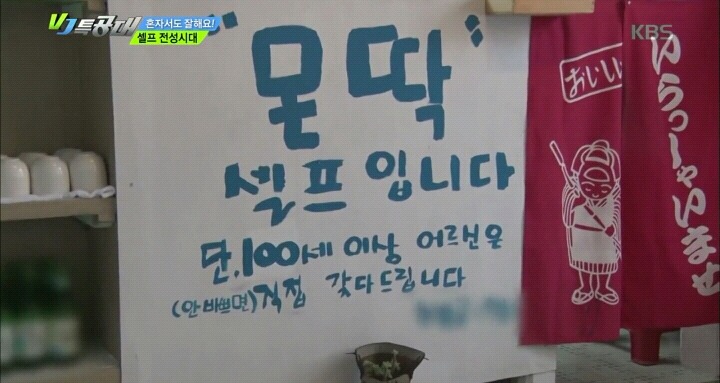 VJ특공대
혼자서도 잘해요!
셀프 전성시대
KBS
"몯딱"
셀프입니다
단.100세 이상 어르신은
(안바쁘면)직접 갖다드립니다
おいしい
いらっしゃいませ